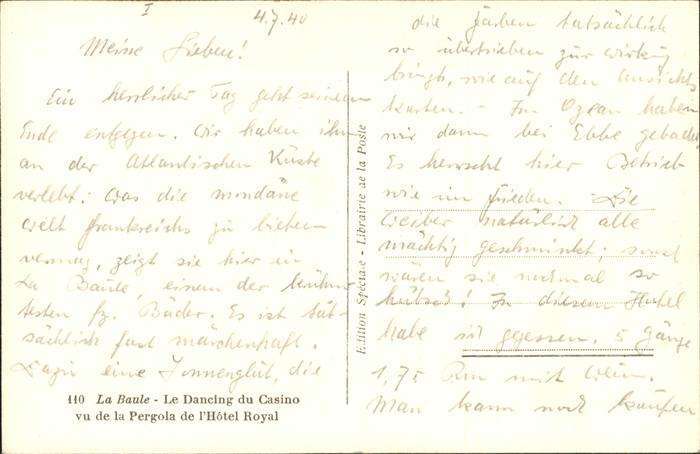 I
4.7.40
Meine Lieben!
Ein herrlicher Tag geht seinem
Ende entgegen. Wir haben ihn
an der Atlantischen Küste
verlebt. Was die mondäne
Welt Frankreichs zu bieten
vermag, zeigt sie hier in
La Baule, einem der berühm-
testen fz. Bäder. Es ist tat-
sächlich fast märchenhaft.
Dazu eine Sonnenglut, die
110 La Baule - Le Dancing du Casino
vu de la Pergola de l'Hôtel Royal
Edition Spéciale - Librairie de la Poste
die Farben tatsächlich
so übertrieben zur Wirkung
bringt, wie auf den Ansichts
karten. - Im Ozean haben
wir dann bei Ebbe gebadet
Es herrscht hier Betrieb
wie im Frieden. Die
Weiber natürlich alle
mächtig geschminkt, sonst
wären sie nochmal so
hübsch! In diesem Hotel
habe ich gegessen. 5 Gänge
1,75 Rm mit Wein.
Man kann noch kaufen